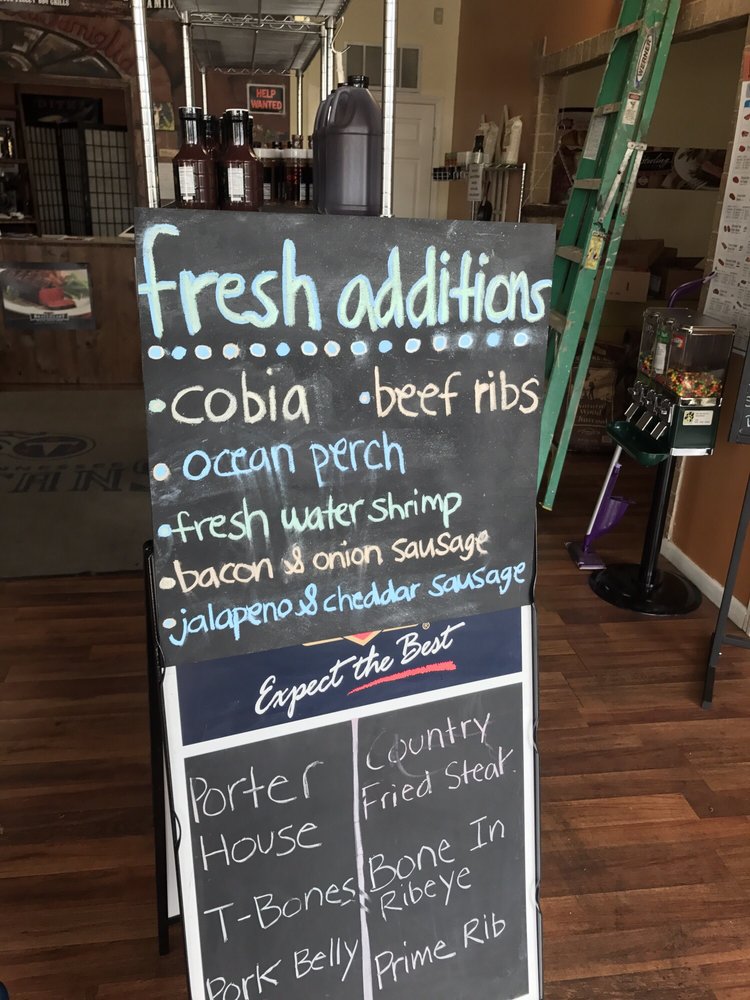 HELP
WANTED
VERNER
fresh additions
•cobia •beef ribs
•ocean perch
•fresh water shrimp
•bacon & onion sausage
•jalapeno & cheddar sausage
Expect the Best
®
Porter
House
T-Bones
Pork Belly
Country
Fried Steak
Bone In
Ribeye
Prime Rib